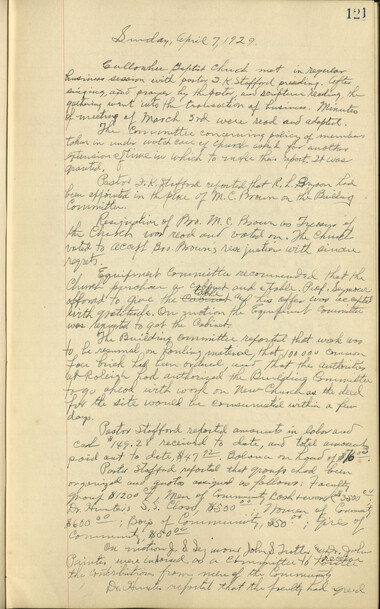 121
Sunday, April 7, 1929.
Cullowhee Baptist Church met in regular
business session with pastor T. K. Stafford presiding. After
singing, and prayer by the pastor, and scripture reading, the
gathering went into the transaction of business. Minutes
of meeting of March 3rd were read and adopted.
The Committee concerning policy of members
taken in under watch care of church asked for another
extension of time in which to make their report. It was
granted.
Pastor T. K. Stafford reported that R. L. had
been appointed in the place of M. C. Brown on the Building
Committee.
Resignation of Bro. M. C. Brown as Treasurer of
the Church was read and voted on. The Church
voted to accept Bro. Brown's resignation with sincere
regrets.
Equipment Committee recommended that the
Church purchase a cabinet and a table. Prof. Seymour
offered to give the Cabinet table and his offer was accepted
with gratitude. On motion the Equipment Committee
was requested to get the Cabinet.
The Building Committee reported that work was
to be resumed on hauling material, that 100 000 common
face brick had been ordered, and that the authorities
at Raleigh had authorized the Building Committee
to go ahead with work on New Church as the deed
for the site would be consumated within a few
days.
Pastor Stafford reported amounts in labor and
cash received to date, and total amounts
paid out to date Balance on hand of
Pastor Stafford reported that groups had been
organized and quotas assigned as follows: Faculty
group $1200 ; Men of Community
Dr. Hunter's S. S. Class, $500 ; Women of Community
$600 ; Boys of Community, $50 ; Girls of
Community
On motion J. S. Seymour, John S. Trotter, & Dr. John
were as a committee to
the contribution from men of the Community.
Dr. Hunter reported that the faculty had agreed